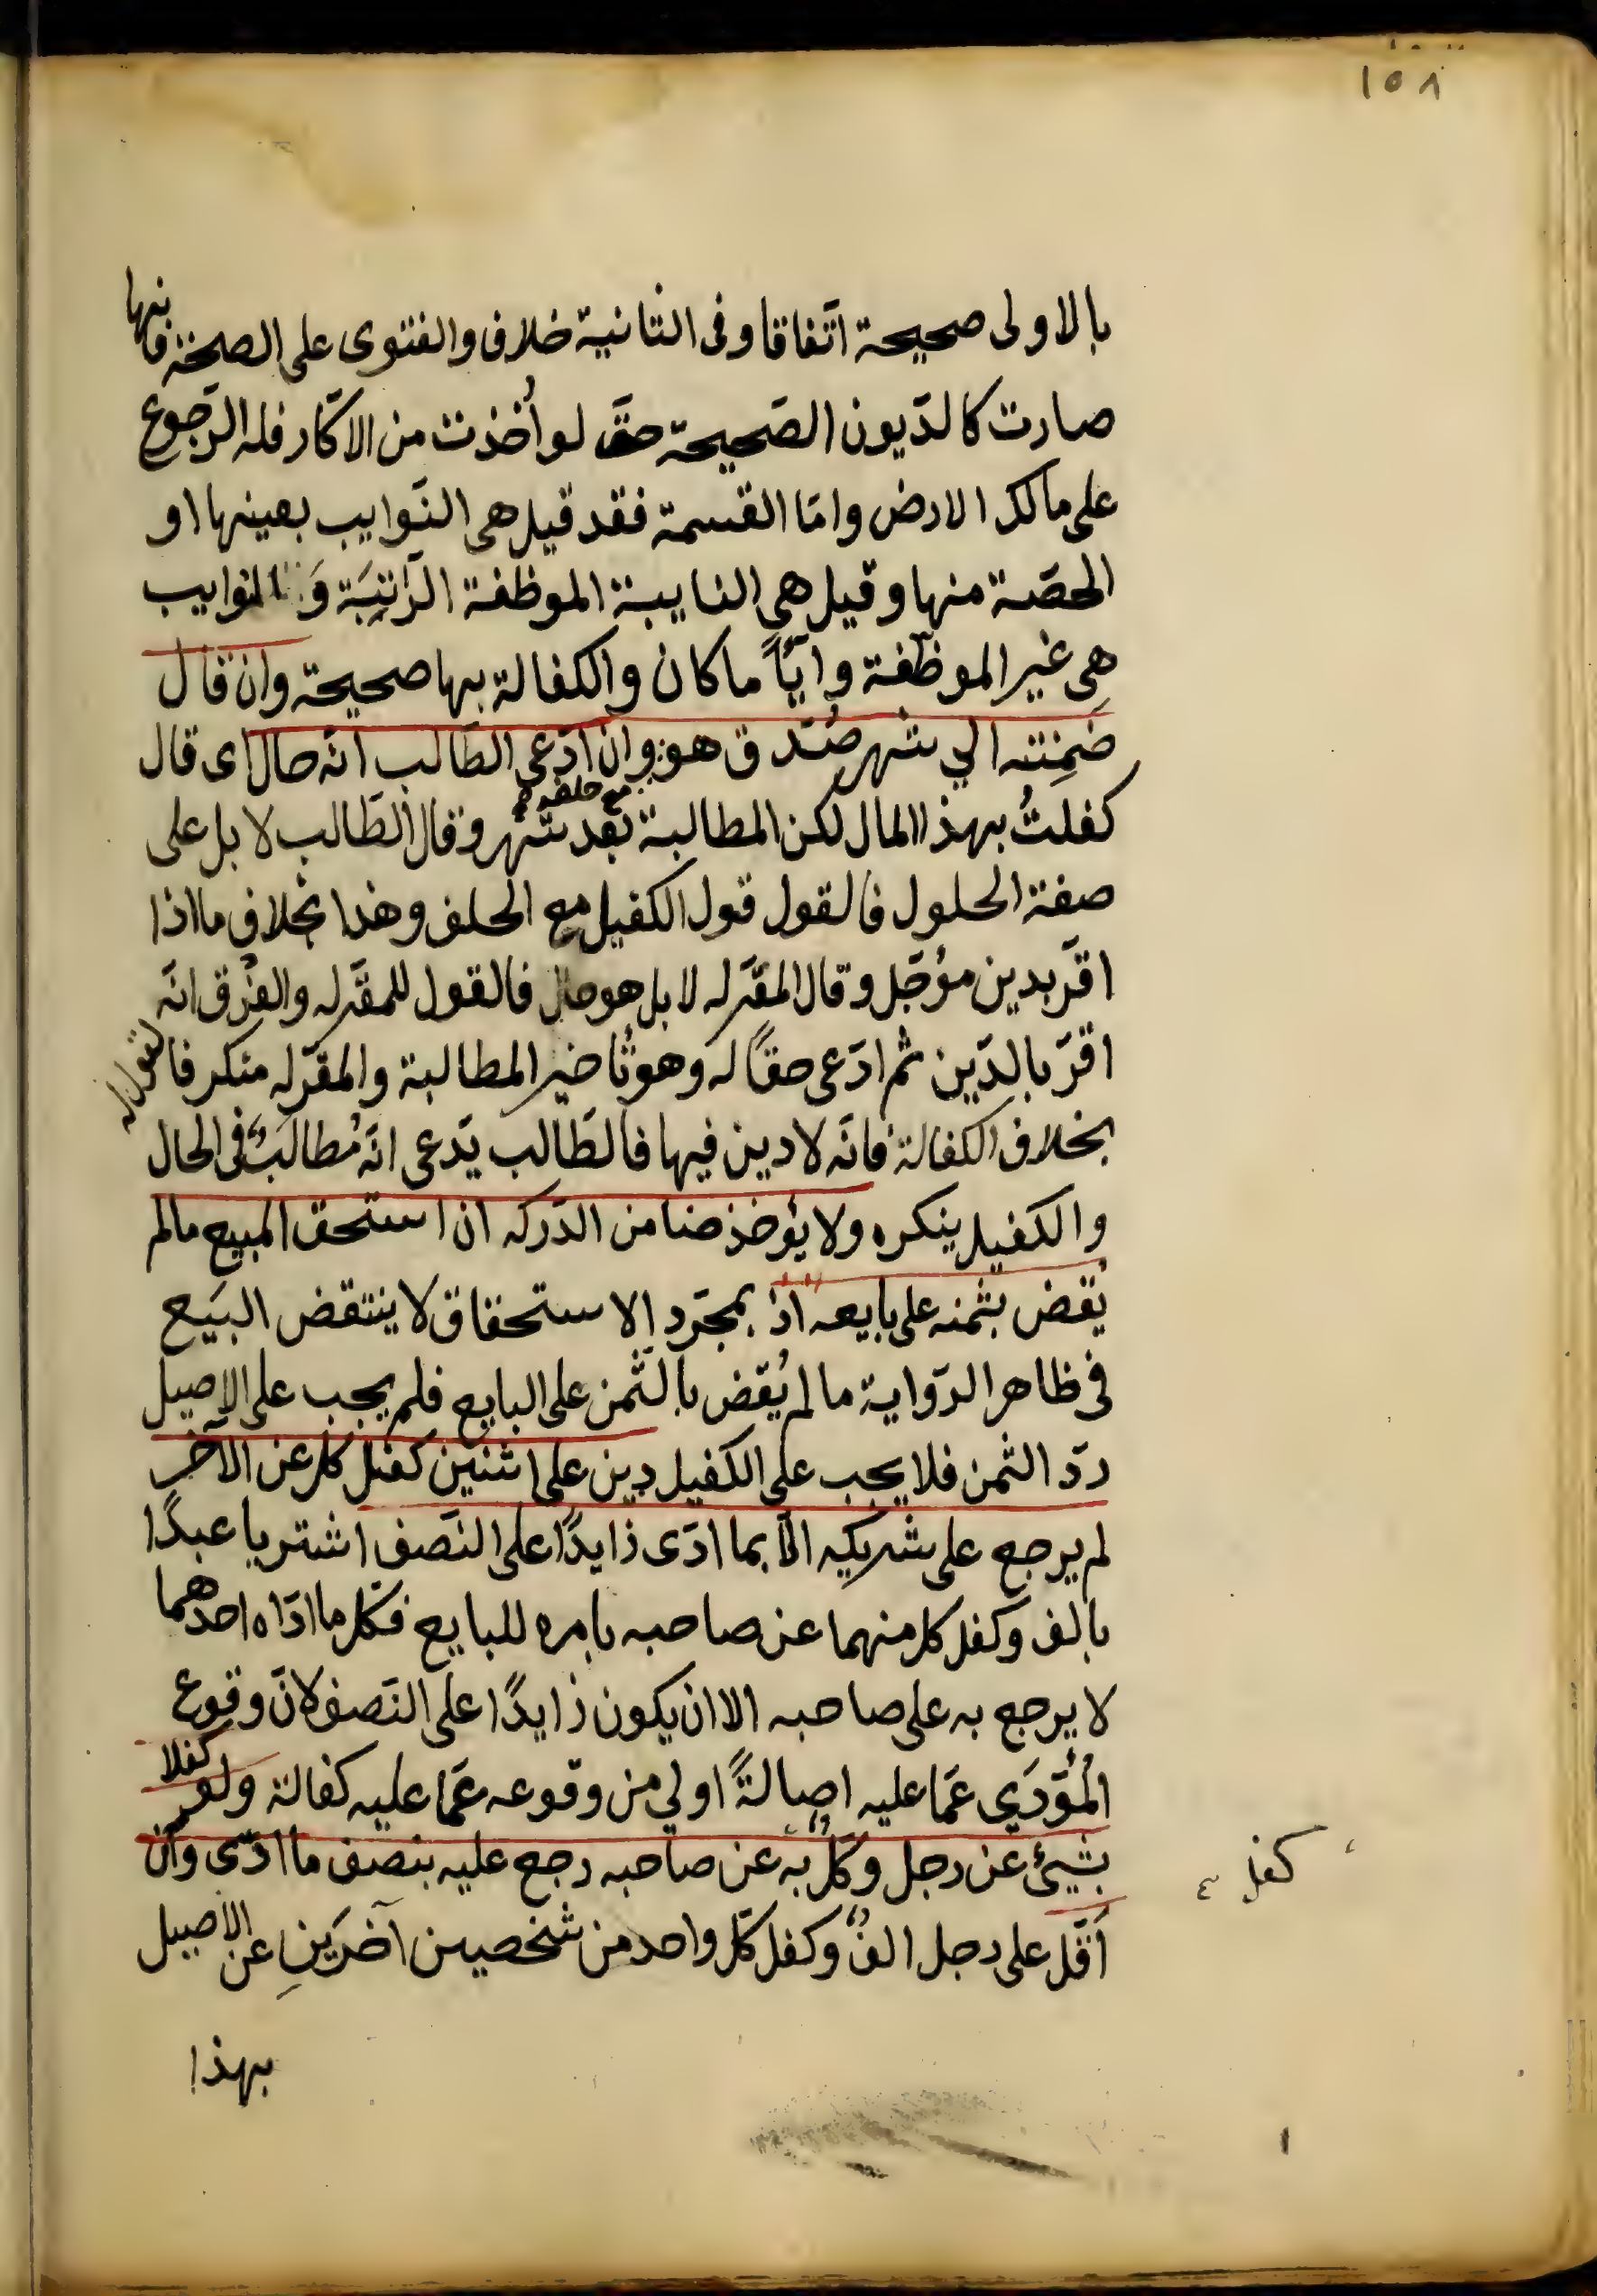 ١٥٨
بالاولى صحيحة اتّفاقا وفى الثانية خلاف والفتوى على الصحّة فانها
صارت كالدّيون الصّحيحة حتّى لو أُخذت من الاكّار فله الرّجوع
على مالك الارض وامّا القسمة فقد قيل هى النّوايب بعينها او
الحصّة منها وقيل هى النايبة الموظفة الرّاتِبَة وَالنوايب
هِى غير الموظّفة وايّاً ما كان والكفالة بها صحيحة وان قال
ضَمِنته الي شهر صُدّق هو وان ادّعى الطّالب انّه حال اى قال
مع حلفه
كفلتُ بهذا المال لكن المطالبة بعد شهر وقال الطّالب لا بل على
صفة الحلول فالقول قول الكفيل مع الحلف وهذا بخلاف ما اذا
اقرّ بدين مؤجّل وقال المقرّ له لا بل هو حال فالقول للمقرّ له والفرق انّه
اقرّ بالدّين ثم ادّعى حقّاً له وهو تاخير المطالبة والمقرّ له منكر فالقول له
بخلاف الكفالة فانّه لا دين فيها فالطّالب يدّعى انّه مُطالَبٌ فى الحال
والكفيل ينكره ولا يؤخذ ضامن الدّرك ان استحق المبيع ما لم
يُقض بثمنه على بايعه اذ بمجرّد الاستحقاق لا ينتقض البَيع
فى ظاهر الرّواية ما لم يُقض بالثّمن على البايع فلم يجب على الاصيل
ردّ الثمن فلا يجب على الكفيل دين على اثنين كفل كل عن الآخر
لم يرجع على شريكه الّا بما ادّى زايدًا على النّصف اشتريا عبدًا
بالف وكفل كل منهما عن صاحبه بامره للبايع فكل ما ادّاه احدهما
لا يرجع به على صاحبه الا ان يكون زايدًا على النّصف لانّ وقوع
المُؤدَّي عمّا عليه اصالةً اولي من وقوعه عمّا عليه كفالة ولو كفلا
بشيئ عن رجل وكلٌّ به عن صاحبه رجع عليه بنصف ما ادّى وان
كفل
اقلّ على رجل الفٌ وكفل كلّ واحد من شخصين آخرَينِ عن الاصيل
بهذا